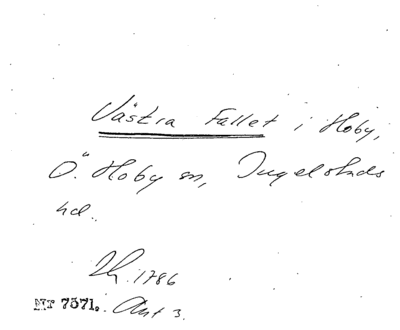 Västra Fallet i Hoby,
Ö. Hoby sn, Ingelstads
hd.
1786
MT 7571. Akt 3.